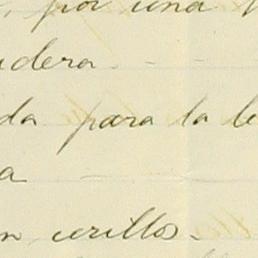 , por una
dera -
da para la
a -
n cerillos -